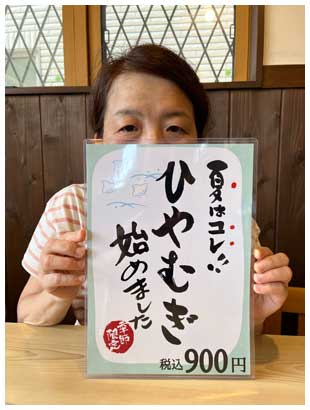 夏はコレ!!
ひやむぎ
始めました
季節
限定
税込900円